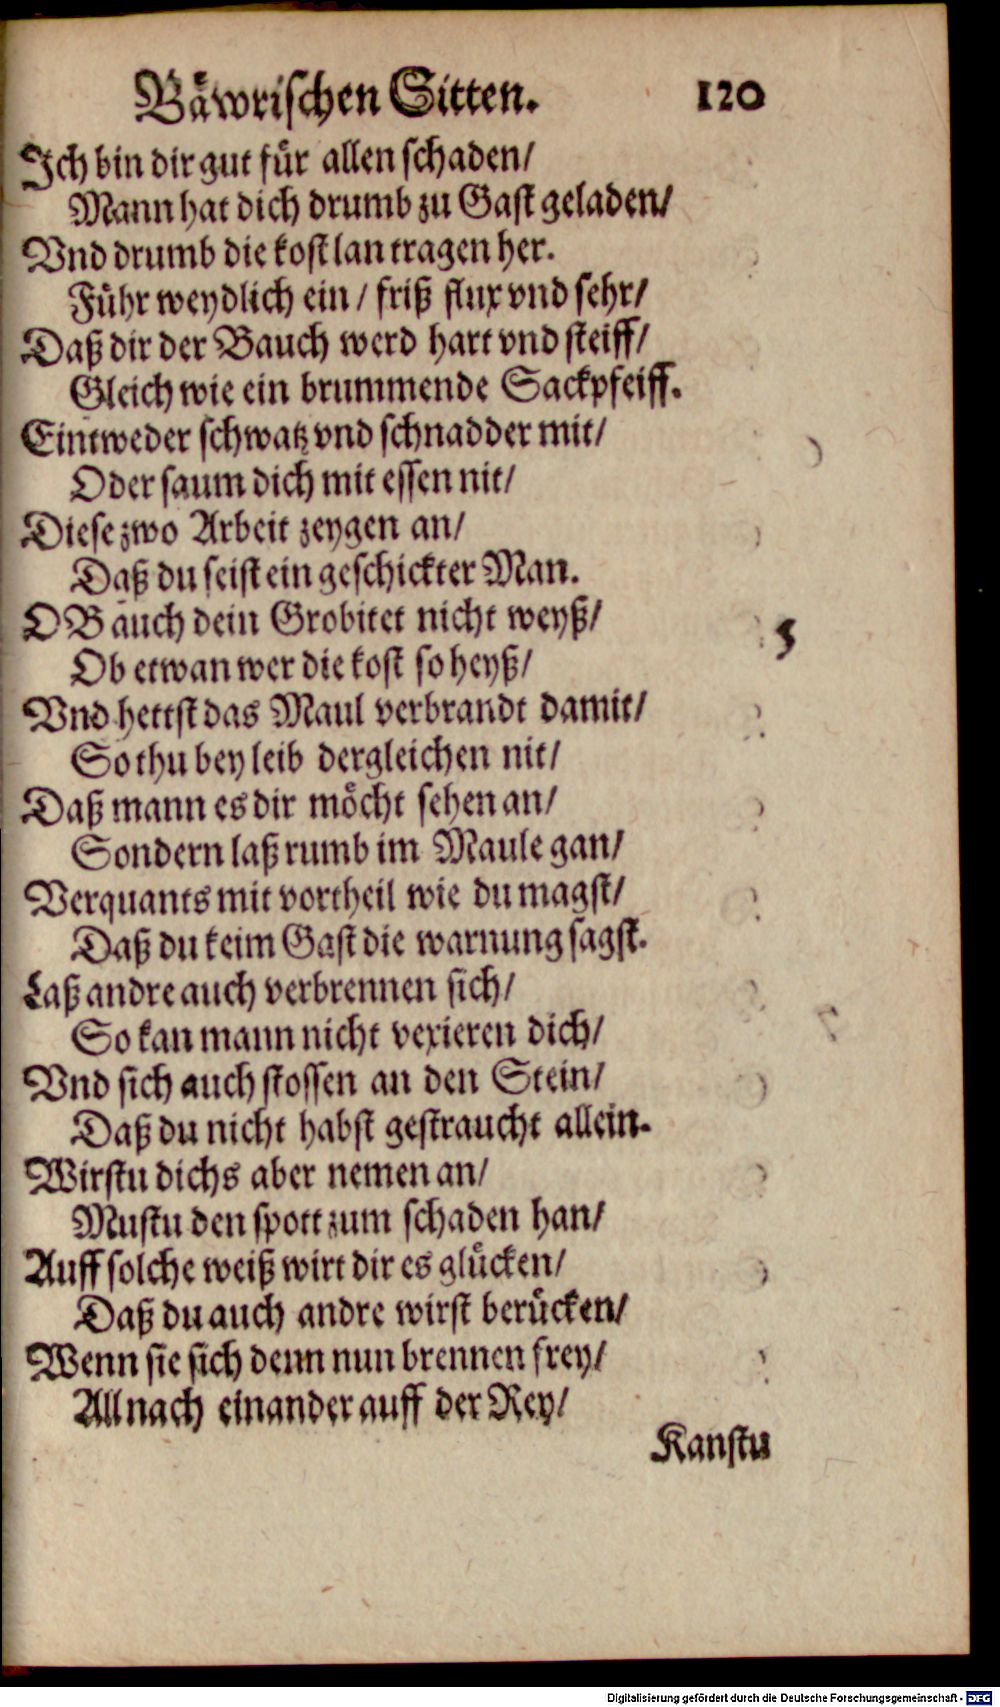 Båwrischen Sitten. 120
Ich bin dir gut für allen schaden/
Mann hat dich drumb zu Gast geladen/
Vnd drumb die kost lan tragen her.
Führ weydlich ein / friß flux vnd sehr/
Daß dir der Bauch werd hart vnd steiff/
Gleich wie ein brummende Sackpfeiff.
Eintweder schwatz vnd schnadder mit/
Oder saum dich mit essen nit/
Diese zwo Arbeit zeygen an/
Daß du seist ein geschickter Man.
O B auch dein Grobitet nicht weyß/
Ob etwan wer die kost so heyß/
Vnd hettst das Maul verbrandt damit/
So thu bey leib dergleichen nit/
Daß mann es dir möcht sehen an/
Sondern laß rumb im Maule gan/
Verquants mit vortheil wie du magst/
Daß du keim Gast die warnung sagst.
Laß andre auch verbrennen sich/
So kan mann nicht vexieren dich/
Vnd sich auch stossen an den Stein/
Daß du nicht habst gestraucht allein.
Wirstu dichs aber nemen an/
Mustu den spott zum schaden han/
Auff solche weiß wirt dir es glücken/
Daß du auch andre wirst berücken/
Wenn sie sich denn nun brennen frey/
All nach einander auff der Rey/
Kanstu
Digitalisierung gefördert durch die Deutsche Forschungsgemeinschaft - DFG